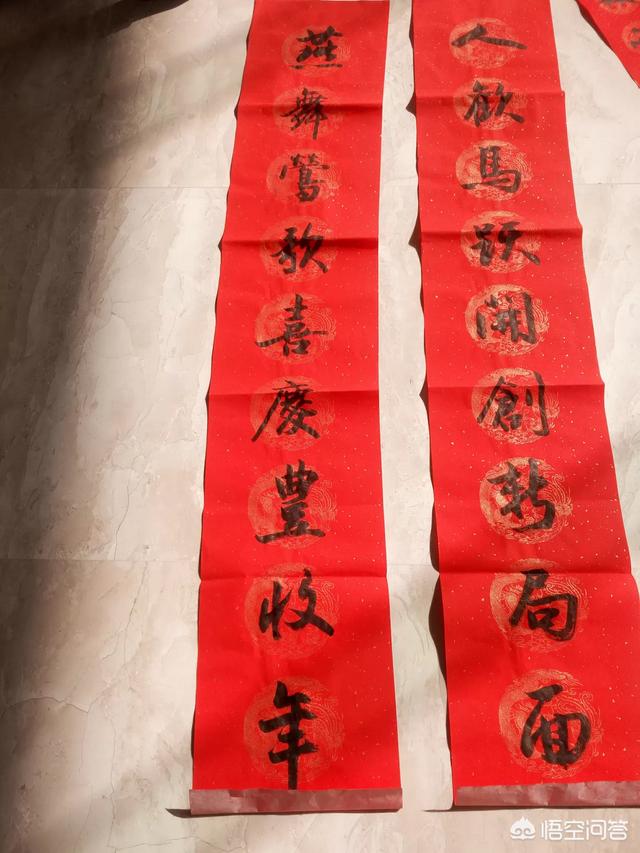 人歡馬跃開創新局面
燕舞鶯歌喜慶豐收年
悟空问答